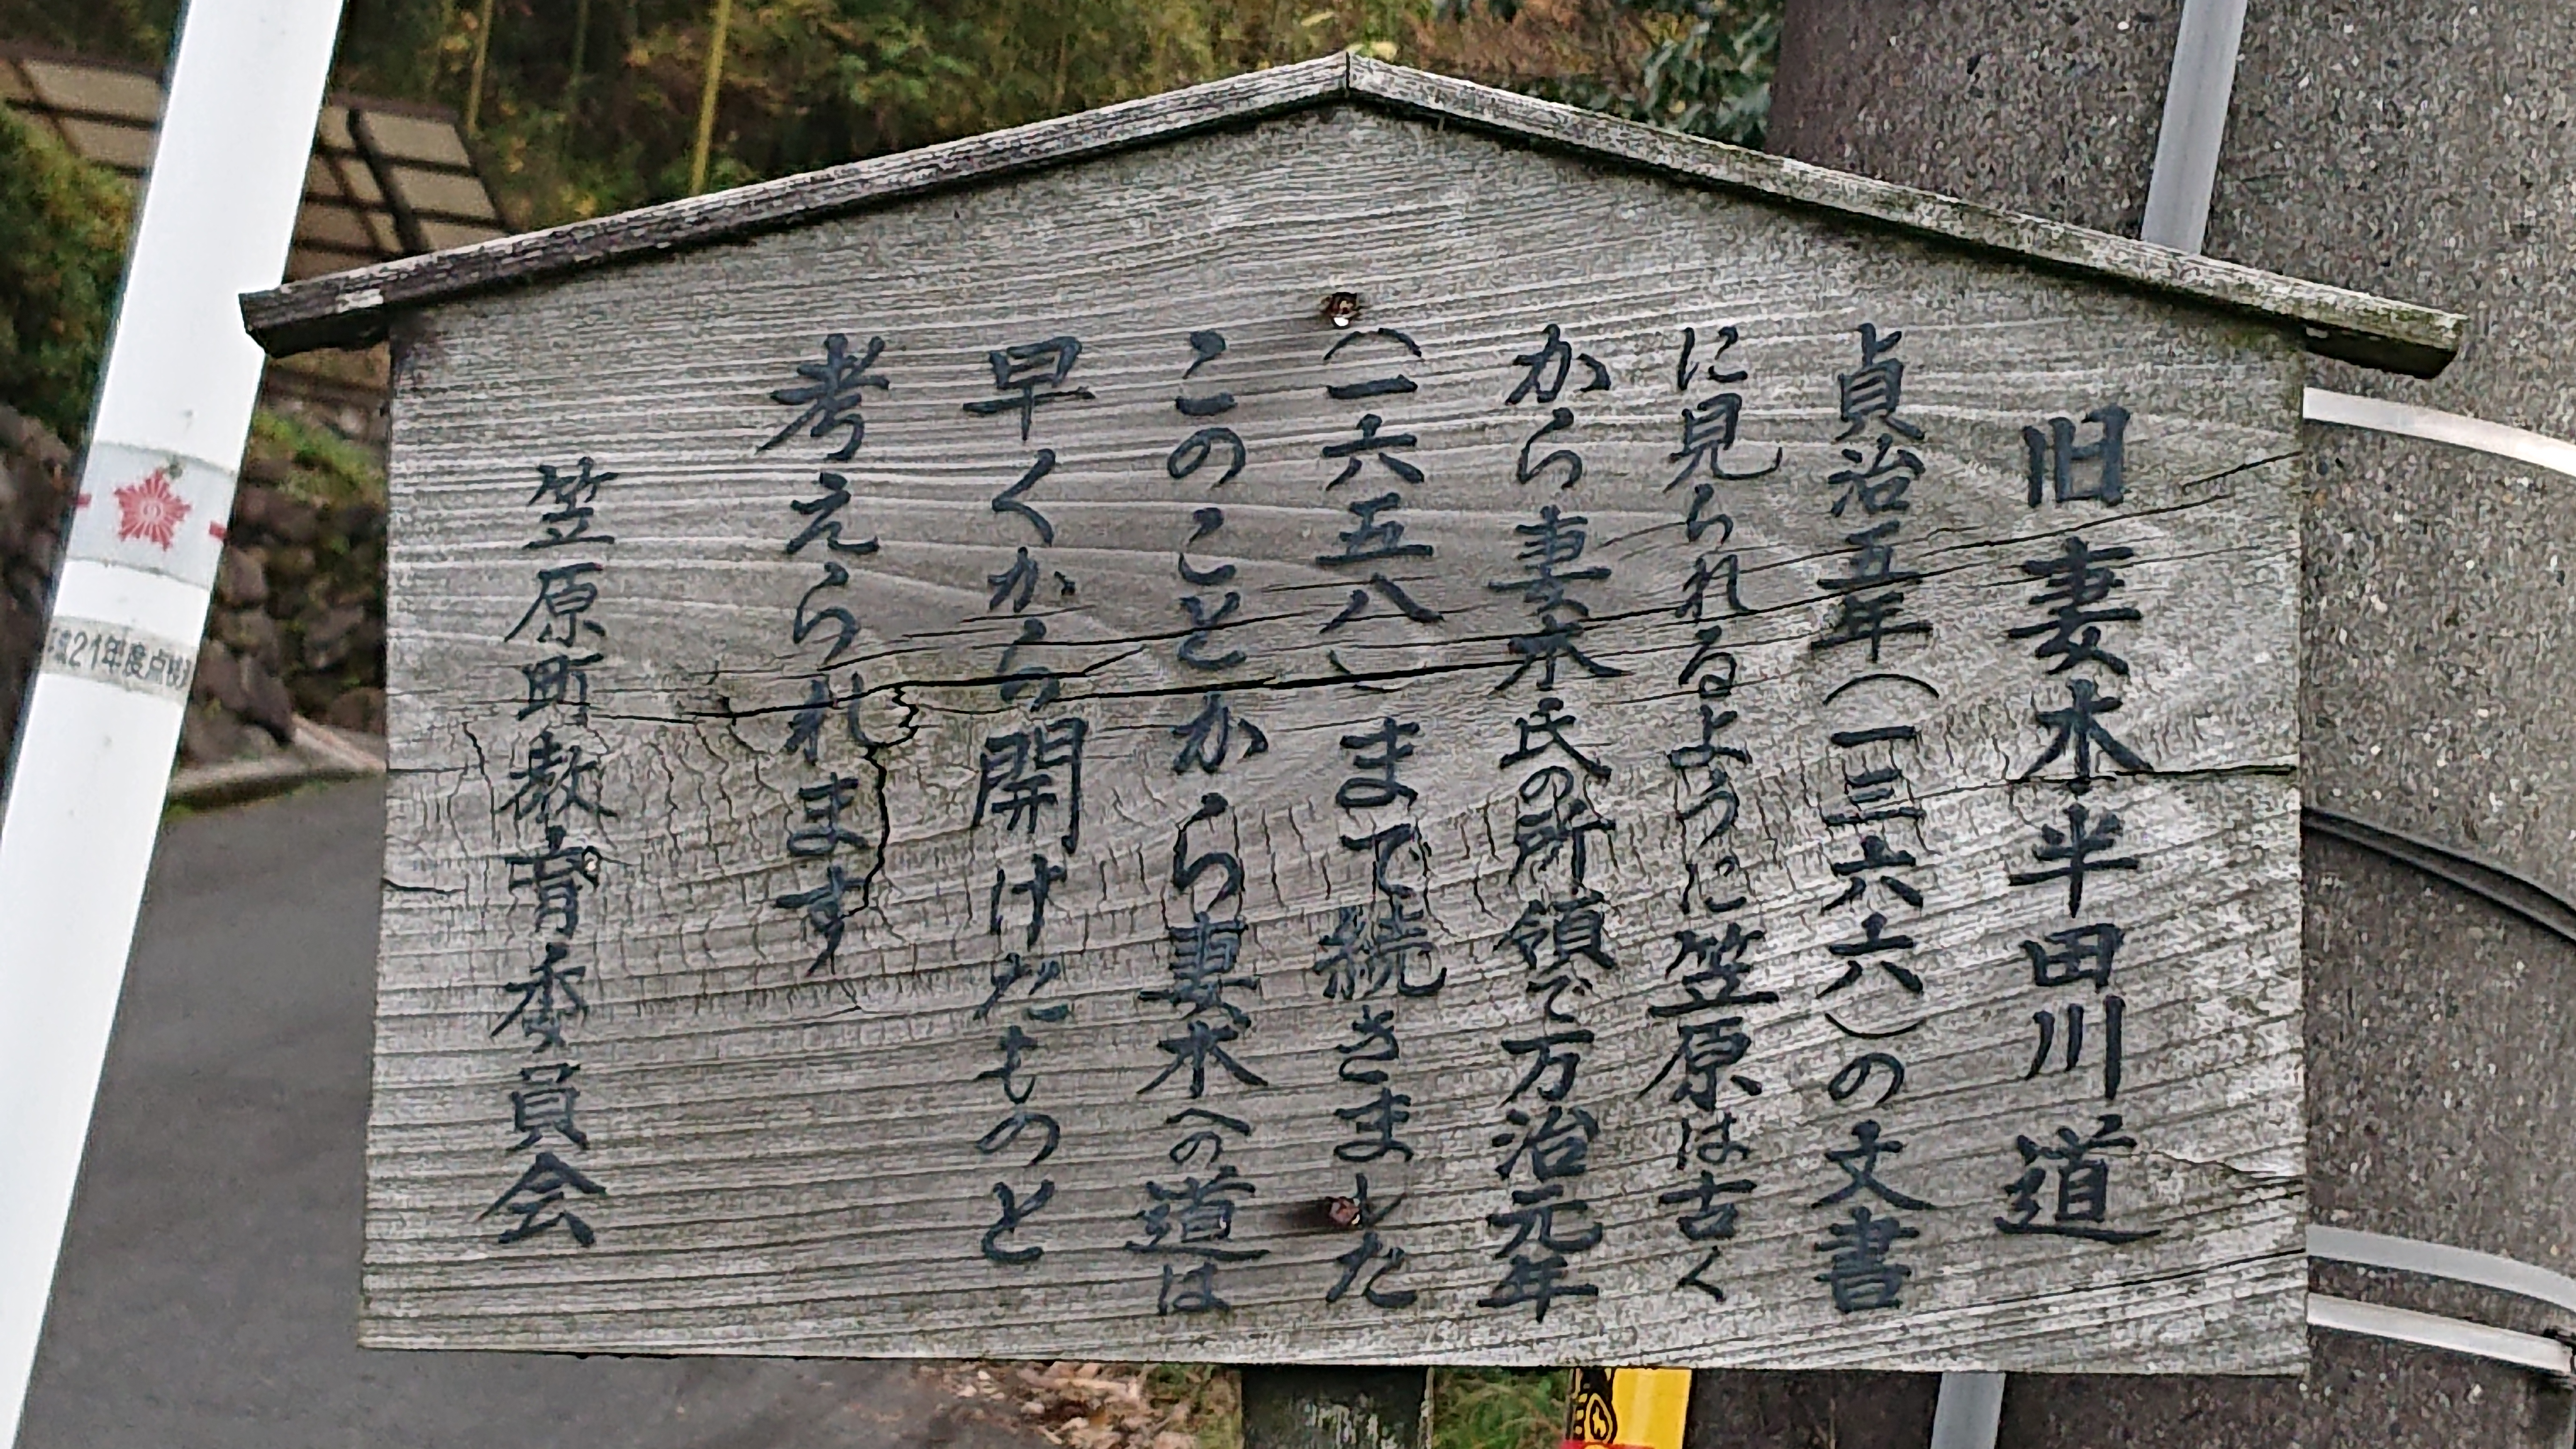 旧妻木半田川道
貞治五年（一三六六）の文書
に見られるように笠原は古く
から妻木氏の所領で万治元年
（一六五八）まで続きました
このことから妻木への道は
早くから開けたものと
考えられます
笠原町教育委員会
21年度点検